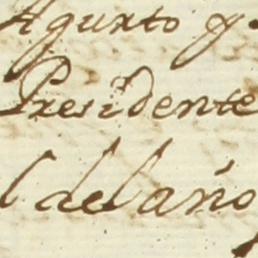 Agurto y
Presidente
l del año